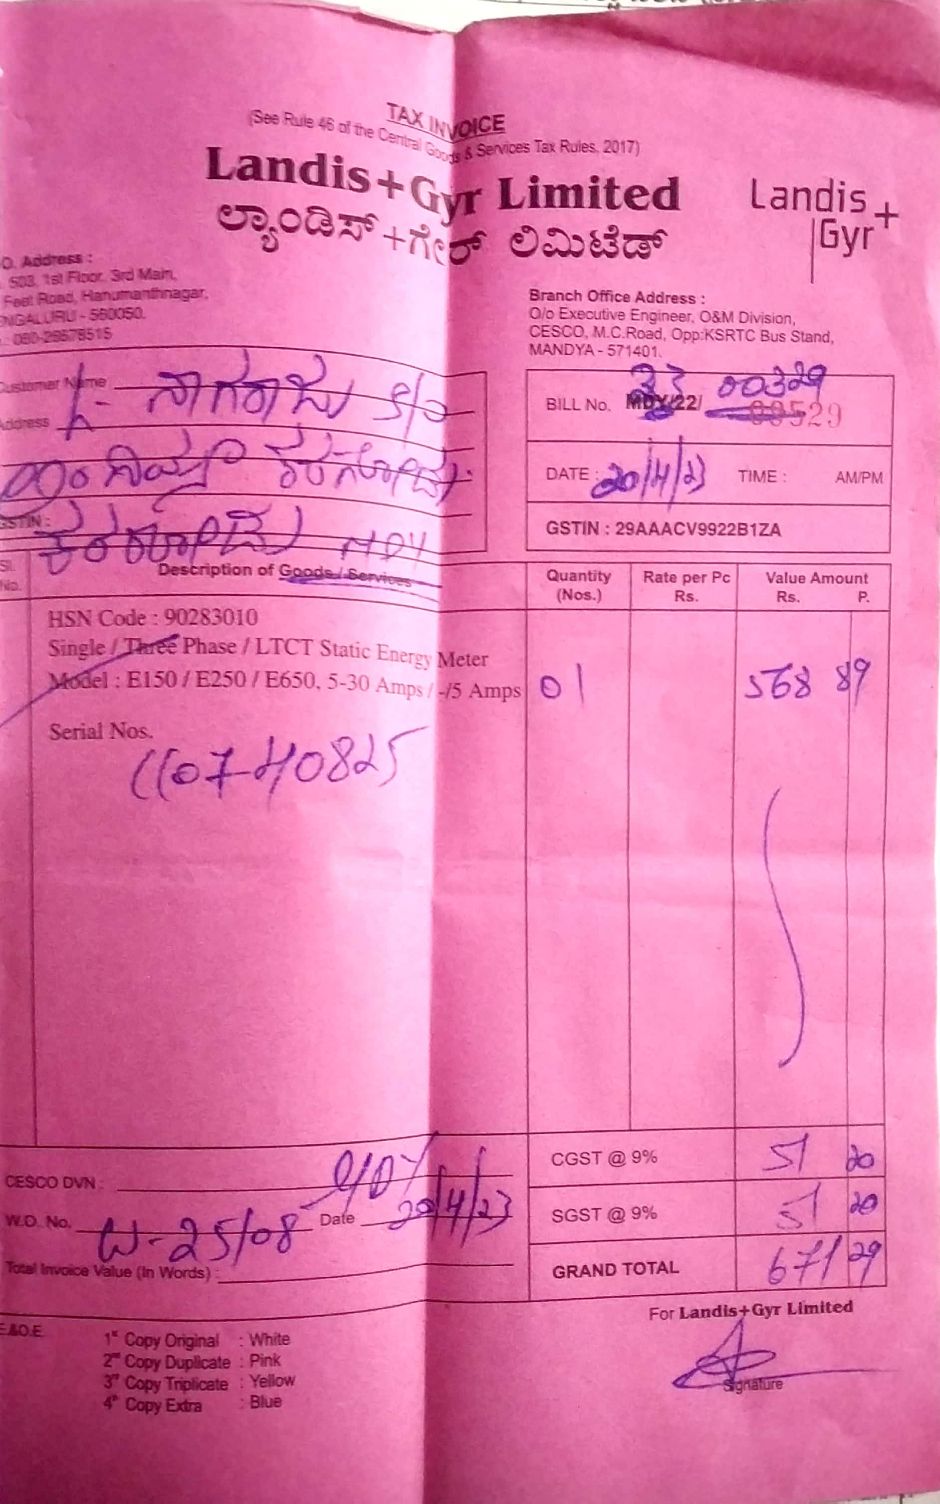 TAX INVOICE
(See Rule 46 of the Central Goods & Services Tax Rules, 2017)
Landis+Gyr Limited
ಲ್ಯಾಂಡಿಸ್+ಗೇರ್ ಲಿಮಿಟೆಡ್
Landis
Gyr+
O. Address :
503, 1st Floor, 3rd Main,
Feet Road, Hanumanthnagar,
NGALURU - 560050.
: 080-26678515
Branch Office Address :
O/o Executive Engineer, O&M Division,
CESCO, M.C.Road, Opp:KSRTC Bus Stand,
MANDYA - 571401.
Customer Name
ನಾಗರಾಜು S/o
Address
GSTIN :
MDY
BILL No. MDY/22/ 00329
00529
DATE : 20/4/23 TIME : AM/PM
GSTIN : 29AAACV9922B1ZA
Sl. No. Description of Goods / Services Quantity (Nos.) Rate per Pc Rs. Value Amount Rs. P.
HSN Code : 90283010
Single / Three Phase / LTCT Static Energy Meter
Model : E150 / E250 / E650, 5-30 Amps / -/5 Amps 01 568 89
Serial Nos.
CESCO DVN :
W.D. No. W-25/08 Date 20/4/23
Total Invoice Value (In Words) :
CGST @ 9% 51 20
SGST @ 9% 51 20
GRAND TOTAL 671 29
For Landis+Gyr Limited
Signature
E&O.E.
1st Copy Original : White
2nd Copy Duplicate : Pink
3rd Copy Triplicate : Yellow
4th Copy Extra : Blue